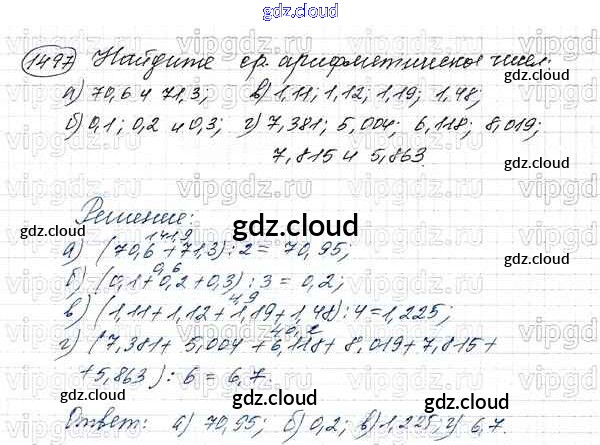 gdz.cloud
1497 Найдите ср. арифметическое чисел:
а) 70,6 и 71,3; в) 1,11; 1,12; 1,19; 1,48;
б) 0,1; 0,2 и 0,3; г) 7,381; 5,004; 6,118; 8,019;
7,815 и 5,863.
gdz.cloud
Решение:
gdz.cloud
141,9
а) (70,6 + 71,3) : 2 = 70,95;
0,6
б) (0,1 + 0,2 + 0,3) : 3 = 0,2;
4,9
в) (1,11 + 1,12 + 1,19 + 1,48) : 4 = 1,225;
40,2
г) (7,381 + 5,004 + 6,118 + 8,019 + 7,815 +
+ 5,863) : 6 = 6,7.
gdz.cloud
Ответ: а) 70,95; б) 0,2; в) 1,225; г) 6,7.
gdz.cloud
vipgdz.ru